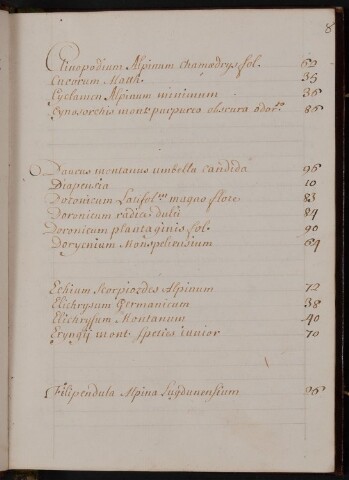 8
Clinopodium Alpinum Chamædrys fol. 62
Cneorum Matth. 35
Cyclamen Alpinum minimum 36
Cynosorchis mont. purpurea obscura odor.ta 86
Daucus montanus umbella candida 96
Diapensia 10
Doronicum Latifol.um magno flore 83
Doronicum radice dulci 84
Doronicum plantaginis fol. 90
Dorycnium Monspeliensium 64
Echium Scorpioides Alpinum 72
Elichrysum Germanicum 38
Elichrysum Montanum 40
Eryngÿ mont. species iunior 70
Filipendula Alpina Lugdunensium 26